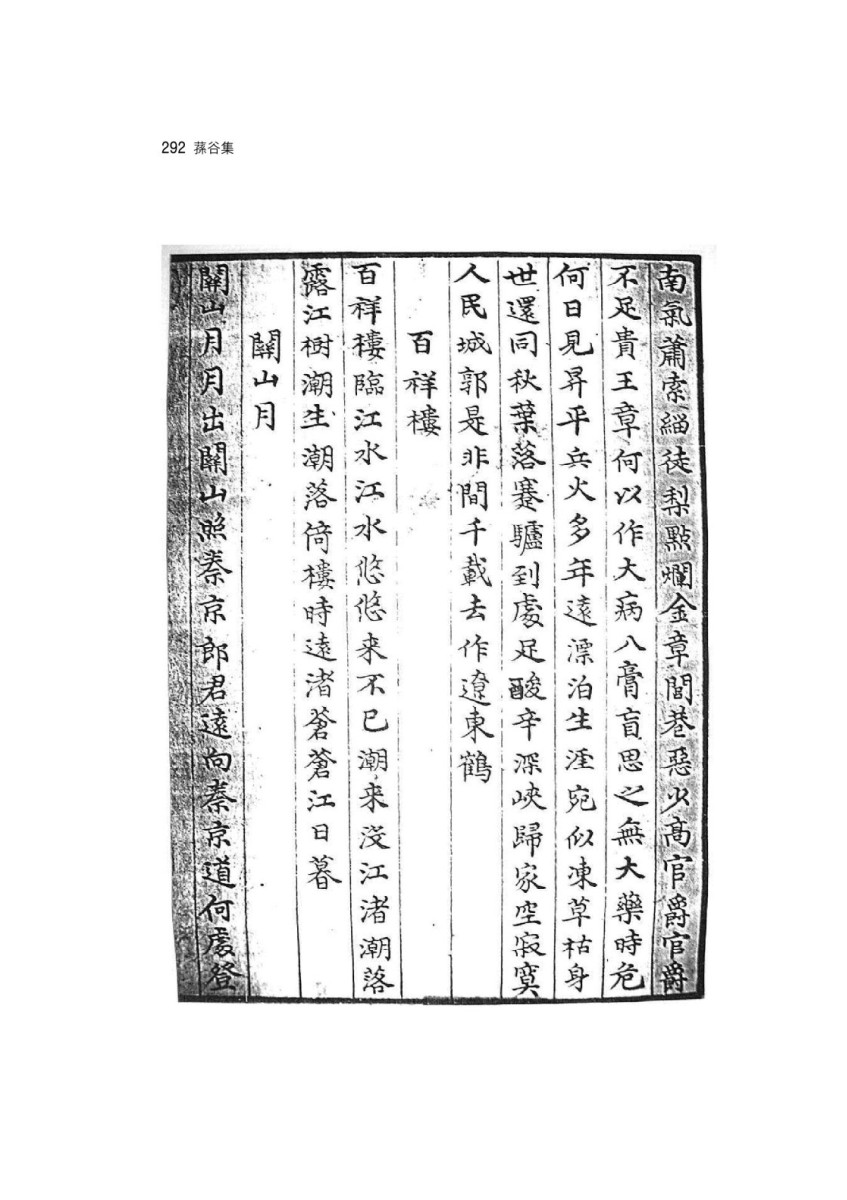 292 蓀谷集
南氣蕭索緇徒梨點爛金章閭巷惡少高官爵官爵
不足貴王章何以作大病入膏盲思之無大藥時危
何日見昇平兵火多年遠漂泊生涯宛似凍草枯身
世還同秋葉落蹇驢到處足酸辛深峽歸家空寂寞
人民城郭是非間千載去作遼東鶴
百祥樓
百祥樓臨江水江水悠悠来不已潮来沒江渚潮落
露江樹潮生潮落倚樓時遠渚蒼蒼江日暮
關山月
關山月月出關山照秦京郎君遠向秦京道何處登